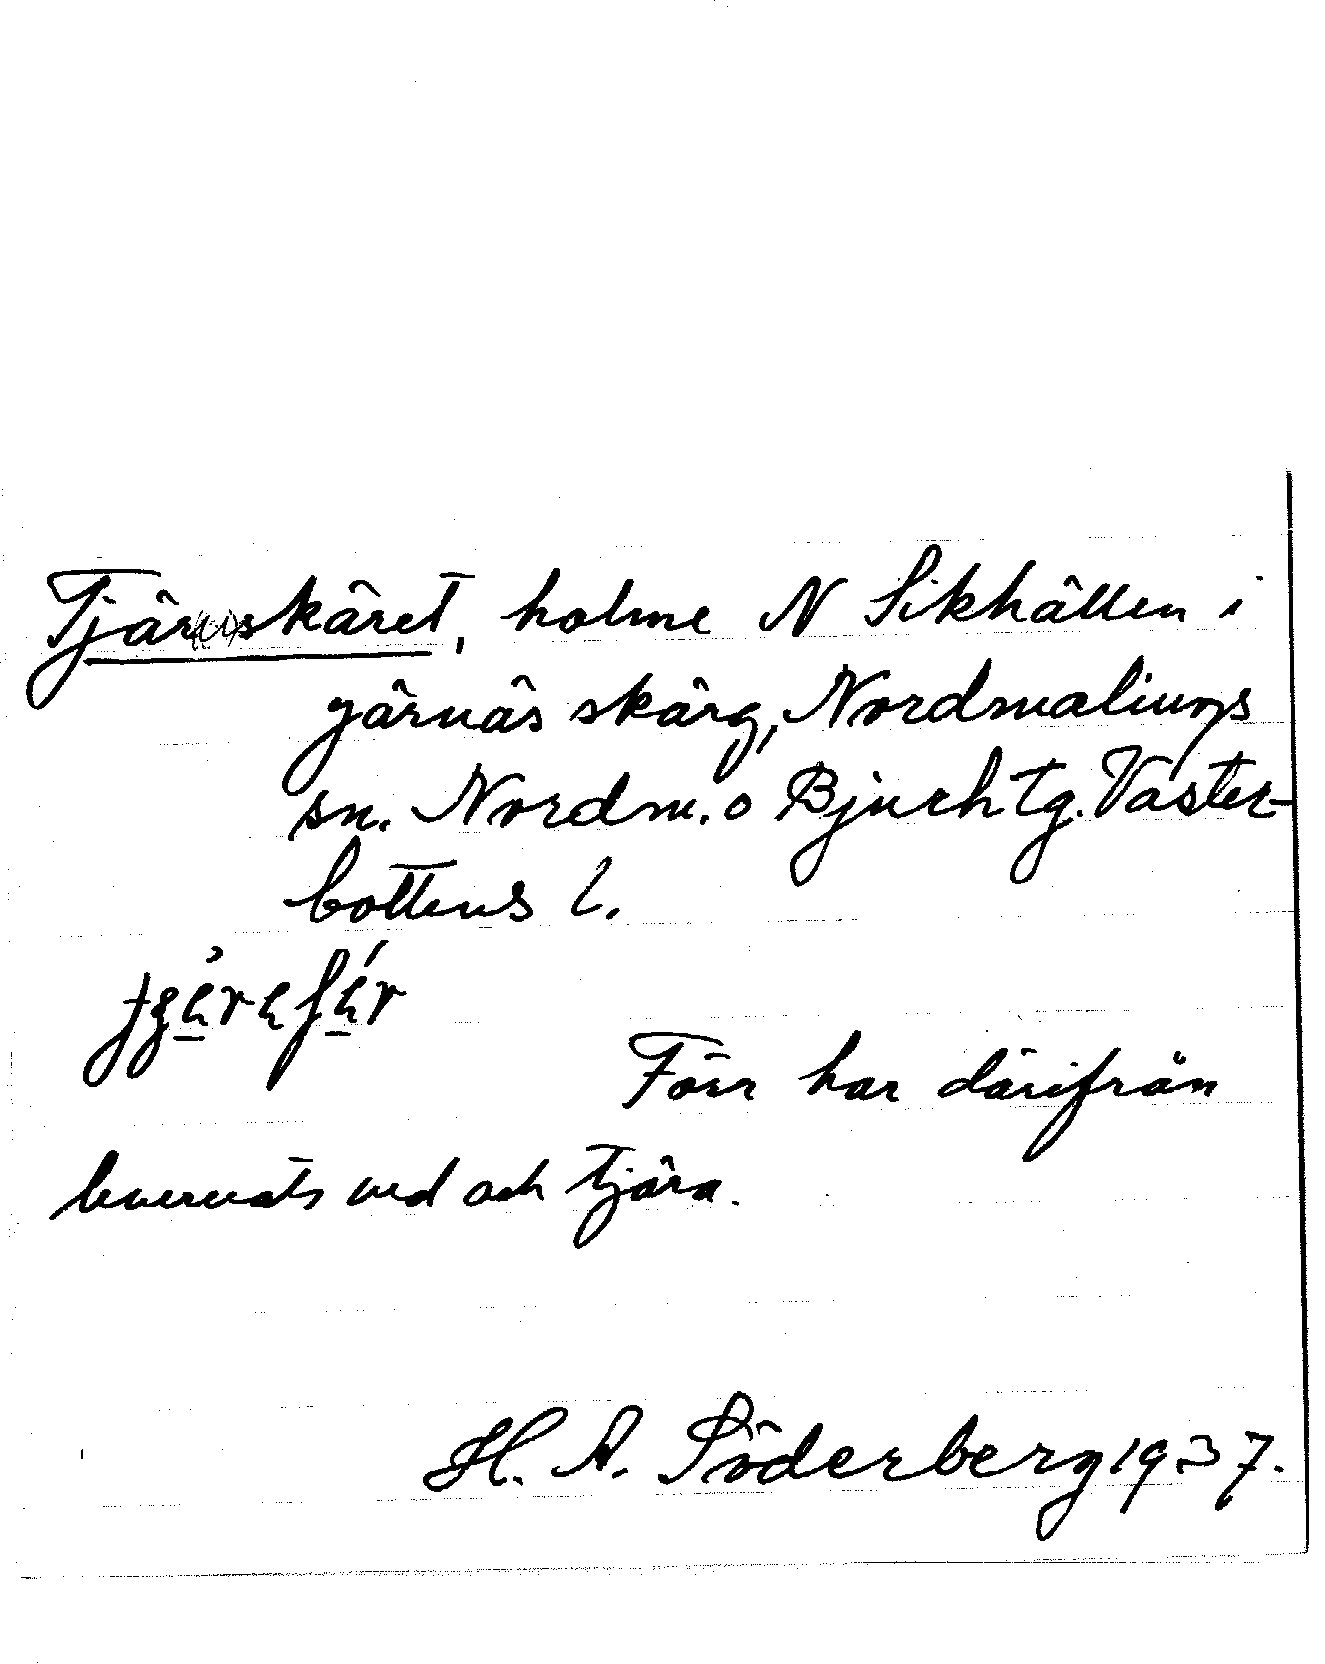 Tjär(u)skäret, holme N Sikhällen i
Järnäs skärg, Nordmalings
sn. Nordm. o Bjurh tg. Väster-
bottens l.
Förr har därifrån
levererats ved och tjära.
H. A. Söderberg 1937.